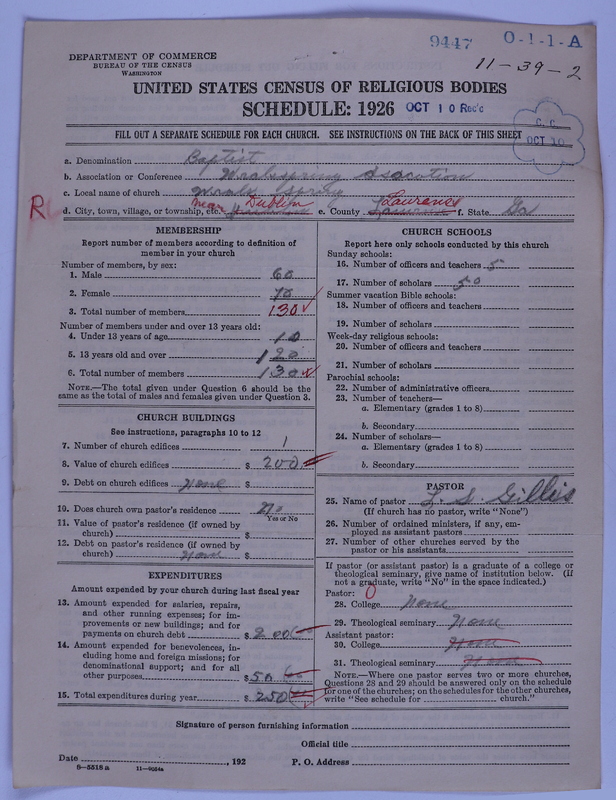 9447 O-1-1-A
11-39-2
DEPARTMENT OF COMMERCE
BUREAU OF THE CENSUS
WASHINGTON
UNITED STATES CENSUS OF RELIGIOUS BODIES
SCHEDULE: 1926 OCT 10 REC'D
C. C.
OCT 10
FILL OUT A SEPARATE SCHEDULE FOR EACH CHURCH. SEE INSTRUCTIONS ON THE BACK OF THIS SHEET
a. Denomination Baptist
b. Association or Conference
c. Local name of church Spring
R d. City, town, village, or township, etc. near Dublin e. County Laurens f. State Ga
MEMBERSHIP
Report number of members according to definition of
member in your church
Number of members, by sex:
1. Male 60
2. Female 70
3. Total number of members 130
Number of members under and over 13 years old:
4. Under 13 years of age 10
5. 13 years old and over 120
6. Total number of members 130
NOTE.—The total given under Question 6 should be the
same as the total of males and females given under Question 3.
CHURCH BUILDINGS
See instructions, paragraphs 10 to 12
7. Number of church edifices 1
8. Value of church edifices $ 200
9. Debt on church edifices None $
10. Does church own pastor's residence No
Yes or No
11. Value of pastor's residence (if owned by
church) $
12. Debt on pastor's residence (if owned by
church) None $
EXPENDITURES
Amount expended by your church during last fiscal year
13. Amount expended for salaries, repairs,
and other running expenses; for im-
provements or new buildings; and for
payments on church debt $ 200
14. Amount expended for benevolences, in-
cluding home and foreign missions; for
denominational support; and for all
other purposes $ 50
15. Total expenditures during year $ 250
CHURCH SCHOOLS
Report here only schools conducted by this church
Sunday schools:
16. Number of officers and teachers 5
17. Number of scholars 50
Summer vacation Bible schools:
18. Number of officers and teachers
19. Number of scholars
Week-day religious schools:
20. Number of officers and teachers
21. Number of scholars
Parochial schools:
22. Number of administrative officers
23. Number of teachers—
a. Elementary (grades 1 to 8)
b. Secondary
24. Number of scholars—
a. Elementary (grades 1 to 8)
b. Secondary
PASTOR
25. Name of pastor L. S. Gillis
(If church has no pastor, write "None")
26. Number of ordained ministers, if any, em-
ployed as assistant pastors
27. Number of other churches served by the
pastor or his assistants
If pastor (or assistant pastor) is a graduate of a college or
theological seminary, give name of institution below. (If
not a graduate, write "No" in the space indicated.)
Pastor: 0
28. College None
29. Theological seminary None
Assistant pastor:
30. College None
31. Theological seminary None
NOTE.—Where one pastor serves two or more churches,
Questions 28 and 29 should be answered only on the schedule
for one of the churches; on the schedules for the other churches,
write "See schedule for church."
Signature of person furnishing information
Official title
Date , 192 P. O. Address
8—5518a 11—9024a